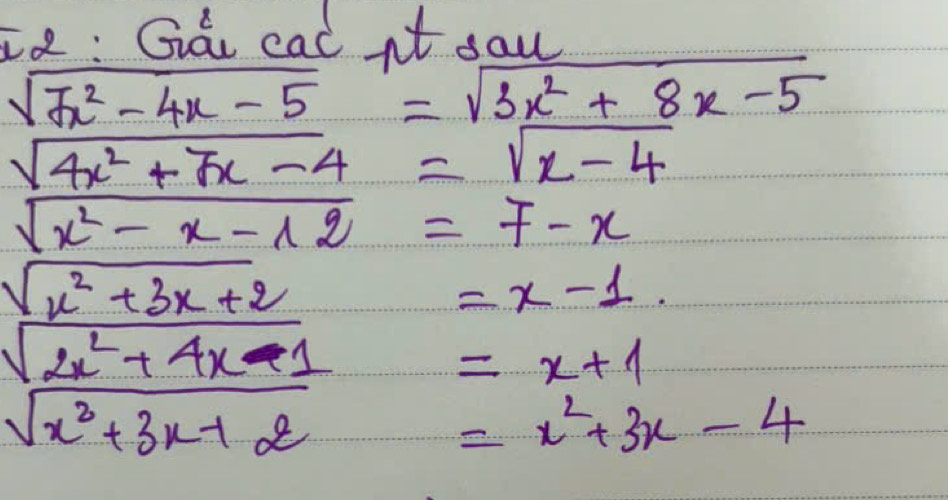 2 : Giải các pt sau
√7x² - 4x - 5 = √3x² + 8x - 5
√4x² + 7x - 4 = √x - 4
√x² - x - 12 = 7 - x
√x² + 3x + 2 = x - 1.
√2x² + 4x - 1 = x + 1
√x² + 3x + 2 = x² + 3x - 4